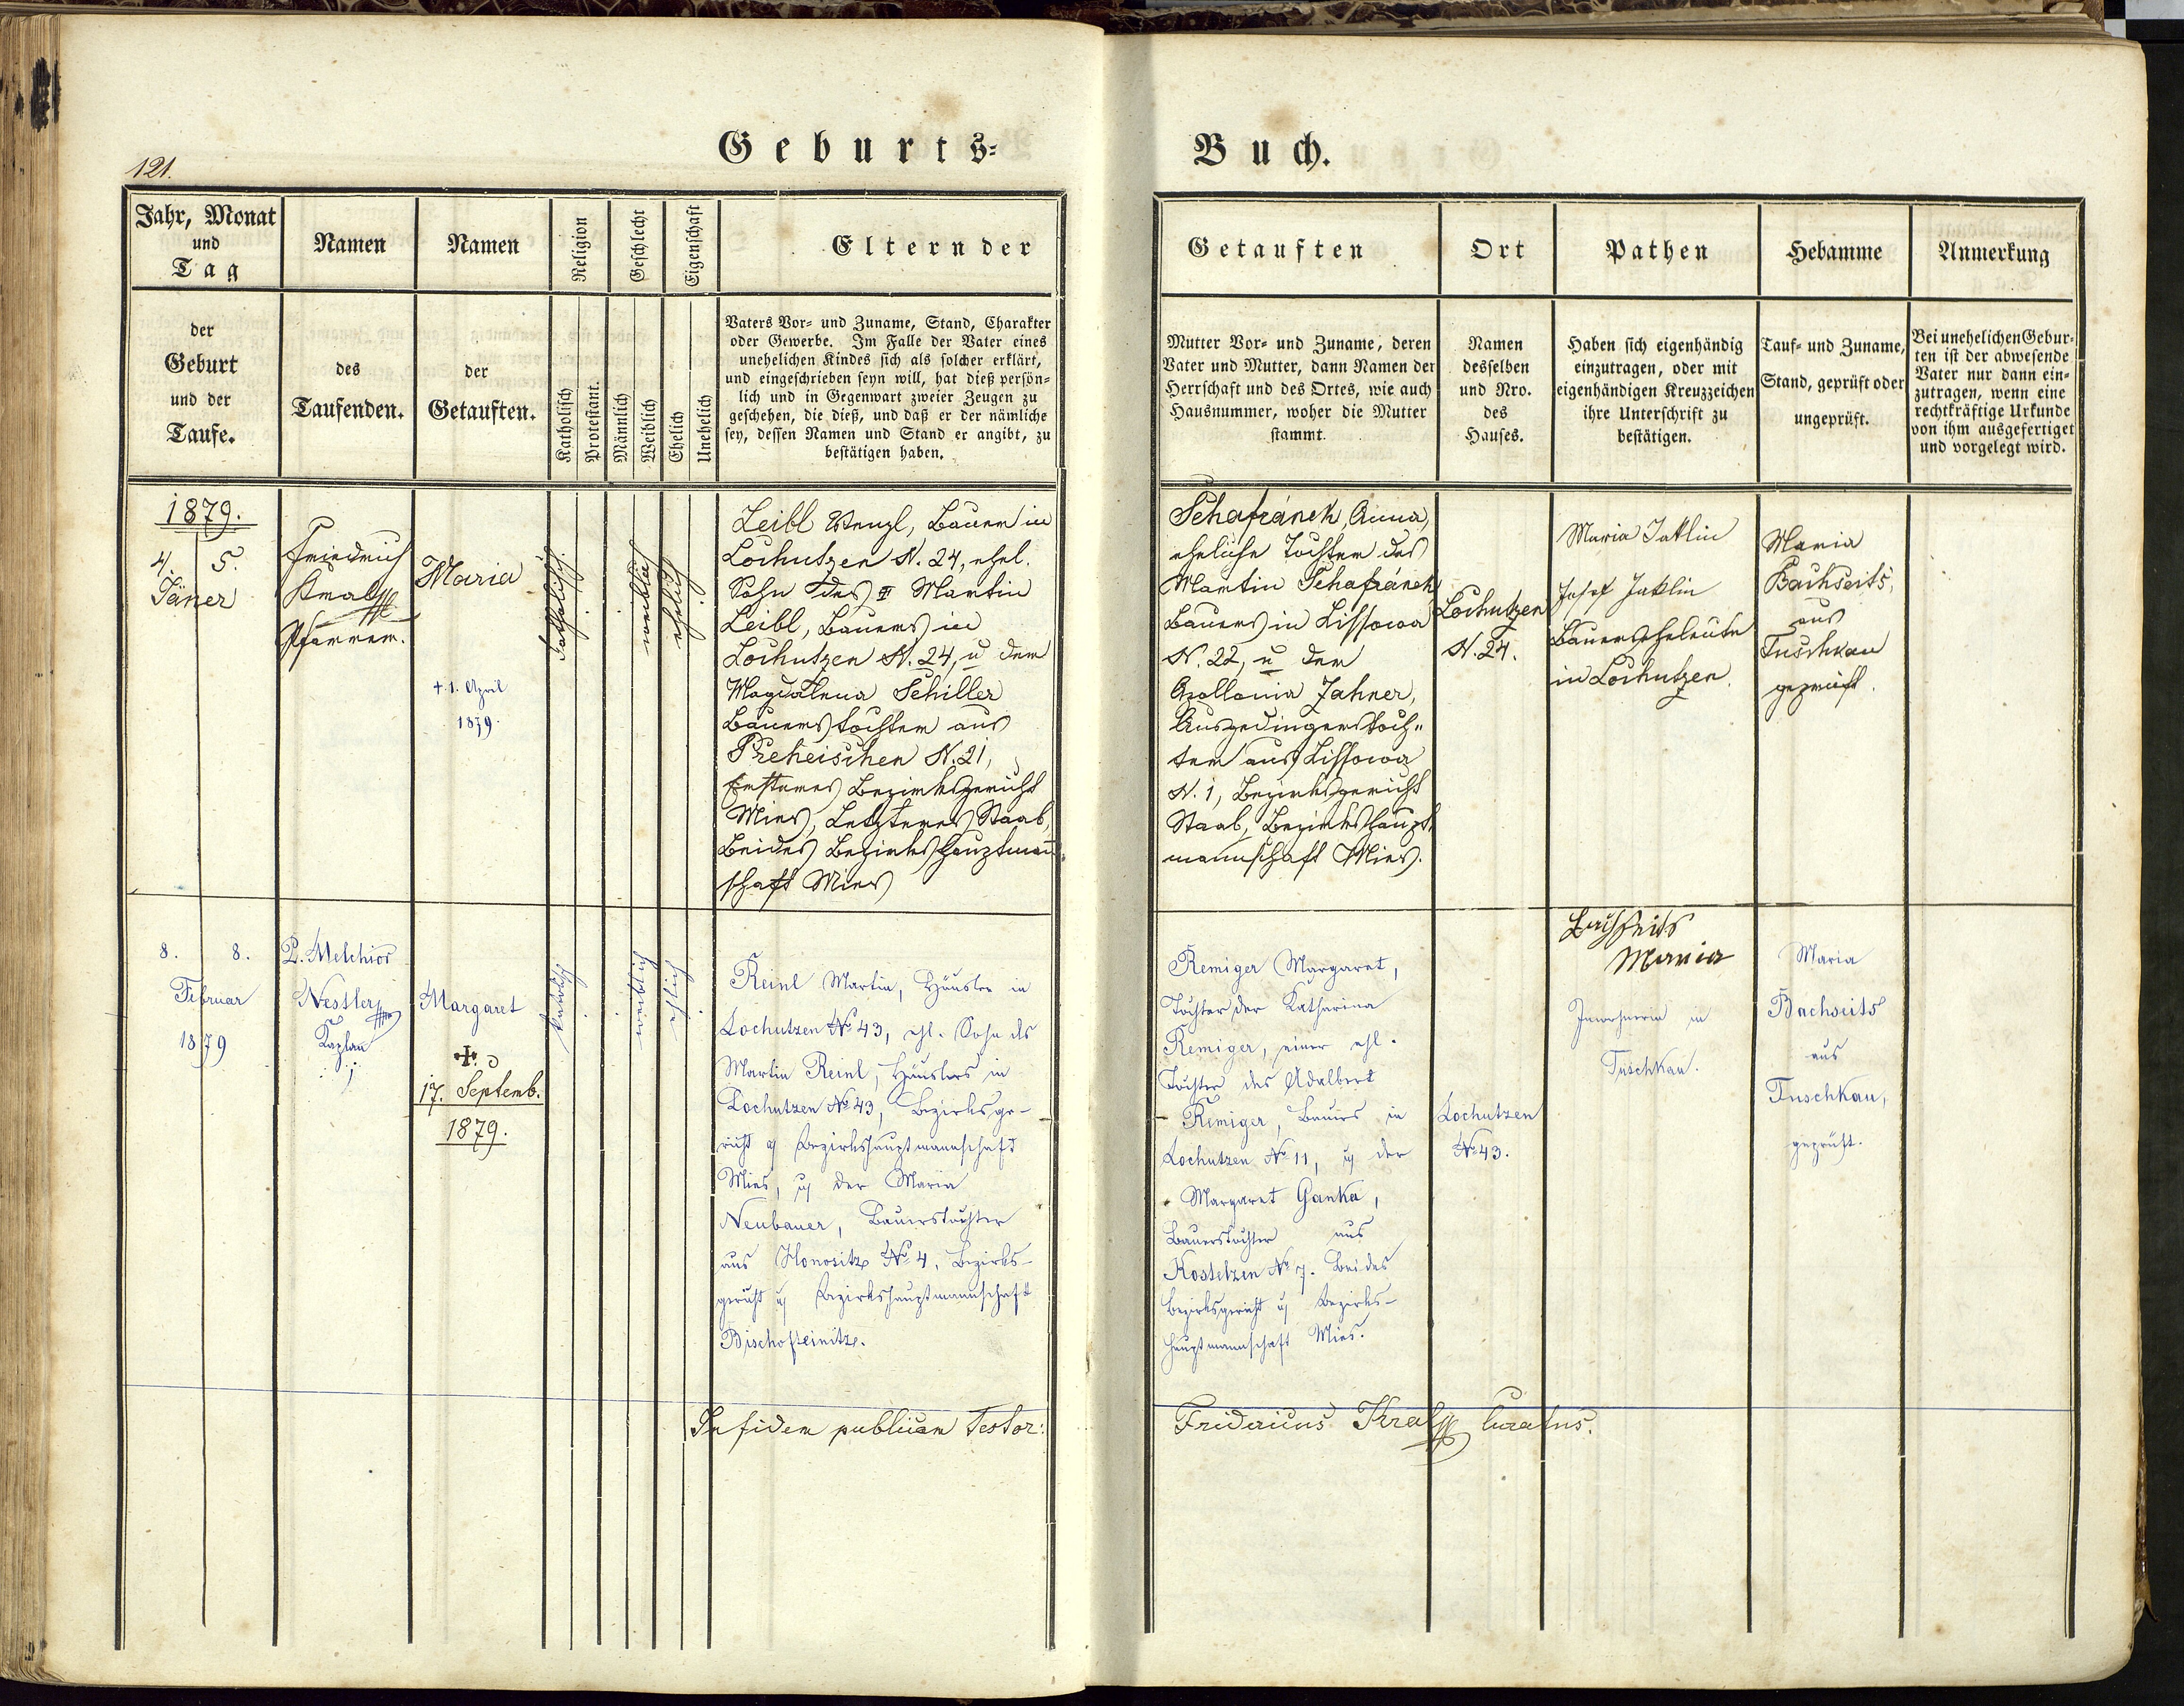 121.
Geburts-
Buch.
Jahr, Monat
und
Tag
der
Geburt
und der
Taufe.
Namen
des
Taufenden.
Namen
der
Getauften.
Religion
Katholisch
Protestant.
Geschlecht
Männlich
Weiblich
Eigenschaft
Ehelich
Unehelich
Eltern der
Vaters Vor- und Zuname, Stand, Charakter
oder Gewerbe. Im Falle der Vater eines
unehelichen Kindes sich als solcher erklärt,
und eingeschrieben seyn will, hat dieß persön-
lich und in Gegenwart zweier Zeugen zu
geschehen, die dieß, und daß er der nämliche
sey, dessen Namen und Stand er angibt, zu
bestätigen haben.
Getauften
Mutter Vor- und Zuname, deren
Vater und Mutter, dann Namen der
Herrschaft und des Ortes, wie auch
Hausnummer, woher die Mutter
stammt.
Ort
Namen
desselben
und Nro.
des
Hauses.
Pathen
Haben sich eigenhändig
einzutragen, oder mit
eigenhändigen Kreuzzeichen
ihre Unterschrift zu
bestätigen.
Hebamme
Tauf- und Zuname,
Stand, geprüft oder
ungeprüft.
Anmerkung
Bei unehelichen Gebur-
ten ist der abwesende
Vater nur dann ein-
zutragen, wenn eine
rechtkräftige Urkunde
von ihm ausgefertiget
und vorgelegt wird.
1879.
4. 5.
Jäner
Friedrich
Kral
Pfarrer.
Maria
+ 1. April
1879.
katholisch
weiblich
ehelich
Leibl Wenzl, Bauer in
Lochutzen N. 24, ehel.
Sohn des Martin
Leibl, Bauers in
Lochutzen N. 24, u der
Magdalena Schiller
Bauerstochter aus
Preheischen N. 21,
Ersteres Bezirksgericht
Mies, Letzteres Staab,
Beides Bezirkshauptmann
schaft Mies
Schafránek, Anna,
eheliche Tochter des
Martin Schafránek
Bauers in Lissowa
N. 22, u der
Apollonia Jahner,
Ausgedingerstoch-
ter aus Lissowa
N. 1, Bezirksgericht
Staab, Bezirkshaupt
mannschaft Mies.
Lochutzen
N. 24.
Maria Jaklin
Josef Jaklin
Bauerseheleute
in Lochutzen.
Maria
Bachseits,
aus
Tuschkau
geprüft.
8. 8.
Februar
1879
P. Melchior
Nestler
Kaplan
Margaret
17. Septemb.
1879.
weiblich
ehelich
Reinl Martin, Häusler in
Lochutzen No 43, ehl. Sohn des
Martin Reinl, Häuslers in
Lochutzen No 43, Bezirksge-
richt u Bezirkshauptmannschaft
Mies, u der Maria
Neubauer, Bauerstochter
aus Honositz No 4, Bezirks-
gericht u Bezirkshauptmannschaft
Bischofteinitz.
Remiger Margaret,
Tochter der Katharina
Remiger, einer ehl.
Tochter des Adalbert
Remiger, Bauers in
Lochutzen No 11, u der
Margaret Ganka,
Bauerstochter aus
Kostelzen No 7. Beides
Bezirksgericht u Bezirks-
hauptmannschaft Mies.
Lochutzen
No 43.
Bachseits
Maria
Inwohnerin in
Tuschkau.
Maria
Bachseits
aus
Tuschkau,
geprüft.
In fidem publicam testor:
Fridericus Kral Curatus.